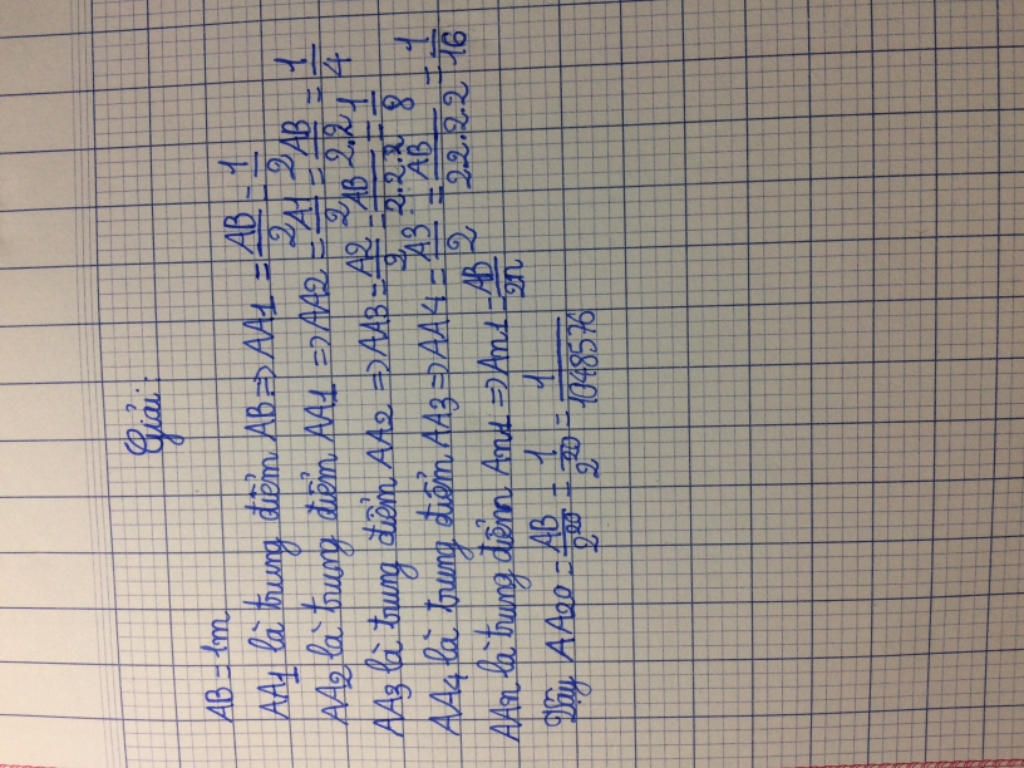 Giải:
AB = 1m
AA1 là trung điểm AB => AA1 = AB/2 = 1/2
AA2 là trung điểm AA1 => AA2 = A1/2 = AB/2.2 = 1/4
AA3 là trung điểm AA2 => AA3 = A2/2 = AB/2.2.2 = 1/8
AA4 là trung điểm AA3 => AA4 = A3/2 = AB/2.2.2.2 = 1/16
AAn là trung điểm An1 => An1 = AB/2n
Vậy AA20 = AB/2^20 = 1/2^20 = 1/1048576